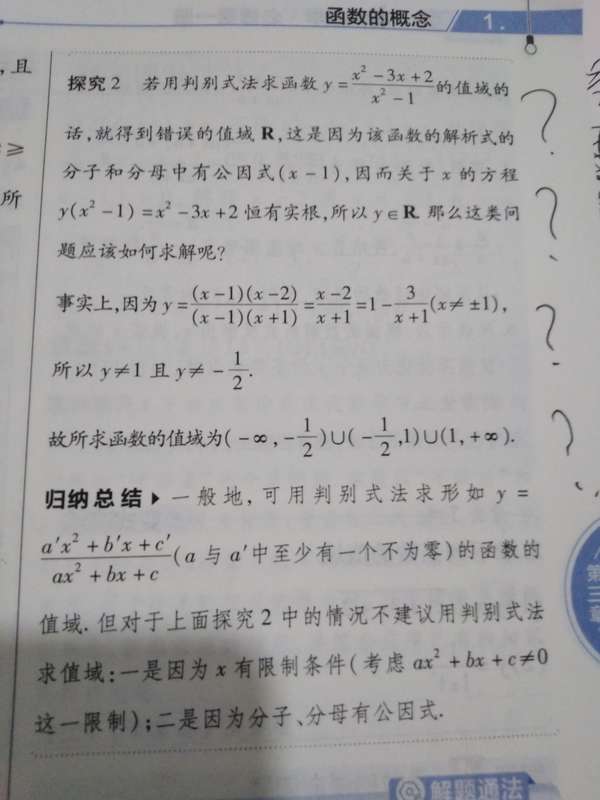 函数的概念 1.
,且
≥
所
探究2 若用判别式法求函数 y=(x²-3x+2)/(x²-1)的值域的
话,就得到错误的值域 R,这是因为该函数的解析式的
分子和分母中有公因式(x-1),因而关于 x 的方程
y(x²-1)=x²-3x+2 恒有实根,所以 y∈R. 那么这类问
题应该如何求解呢?
事实上,因为 y=((x-1)(x-2))/((x-1)(x+1))=(x-2)/(x+1)=1-3/(x+1)(x≠±1),
所以 y≠1 且 y≠-1/2.
故所求函数的值域为(-∞,-1/2)∪(-1/2,1)∪(1,+∞).
归纳总结▶ 一般地,可用判别式法求形如 y=
(a′x²+b′x+c′)/(ax²+bx+c)(a 与 a′中至少有一个不为零)的函数的
值域. 但对于上面探究2 中的情况不建议用判别式法
求值域:一是因为 x 有限制条件(考虑 ax²+bx+c≠0
这一限制);二是因为分子、分母有公因式.
?
?
?
?
第三章
解题通法